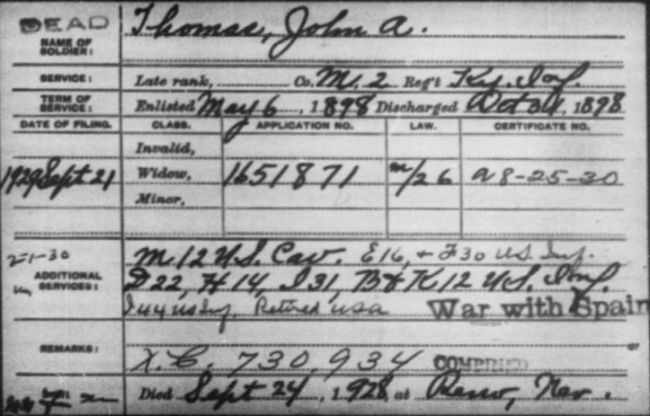 DEAD
NAME OF SOLDIER: Thomas, John A.
SERVICE: Late rank, Co. M, 2 Reg't Ky. Inf.
TERM OF SERVICE: Enlisted May 6, 1898 Discharged Oct 31, 1898
DATE OF FILING. CLASS. APPLICATION NO. LAW. CERTIFICATE NO.
Invalid,
1929 Sept 21 Widow, 1651871 m/26 a 8-25-30
Minor,
2-1-30
ADDITIONAL SERVICES: M 12 U.S. Cav. E16, & F30 U.S. Inf.
D22, H 14, I 31, B & K 12 U.S. Inf.
I 44 US Inf, Retired USA War with Spain
REMARKS: X.C. 730,934
Died Sept 24, 1928, at Reno, Nev.